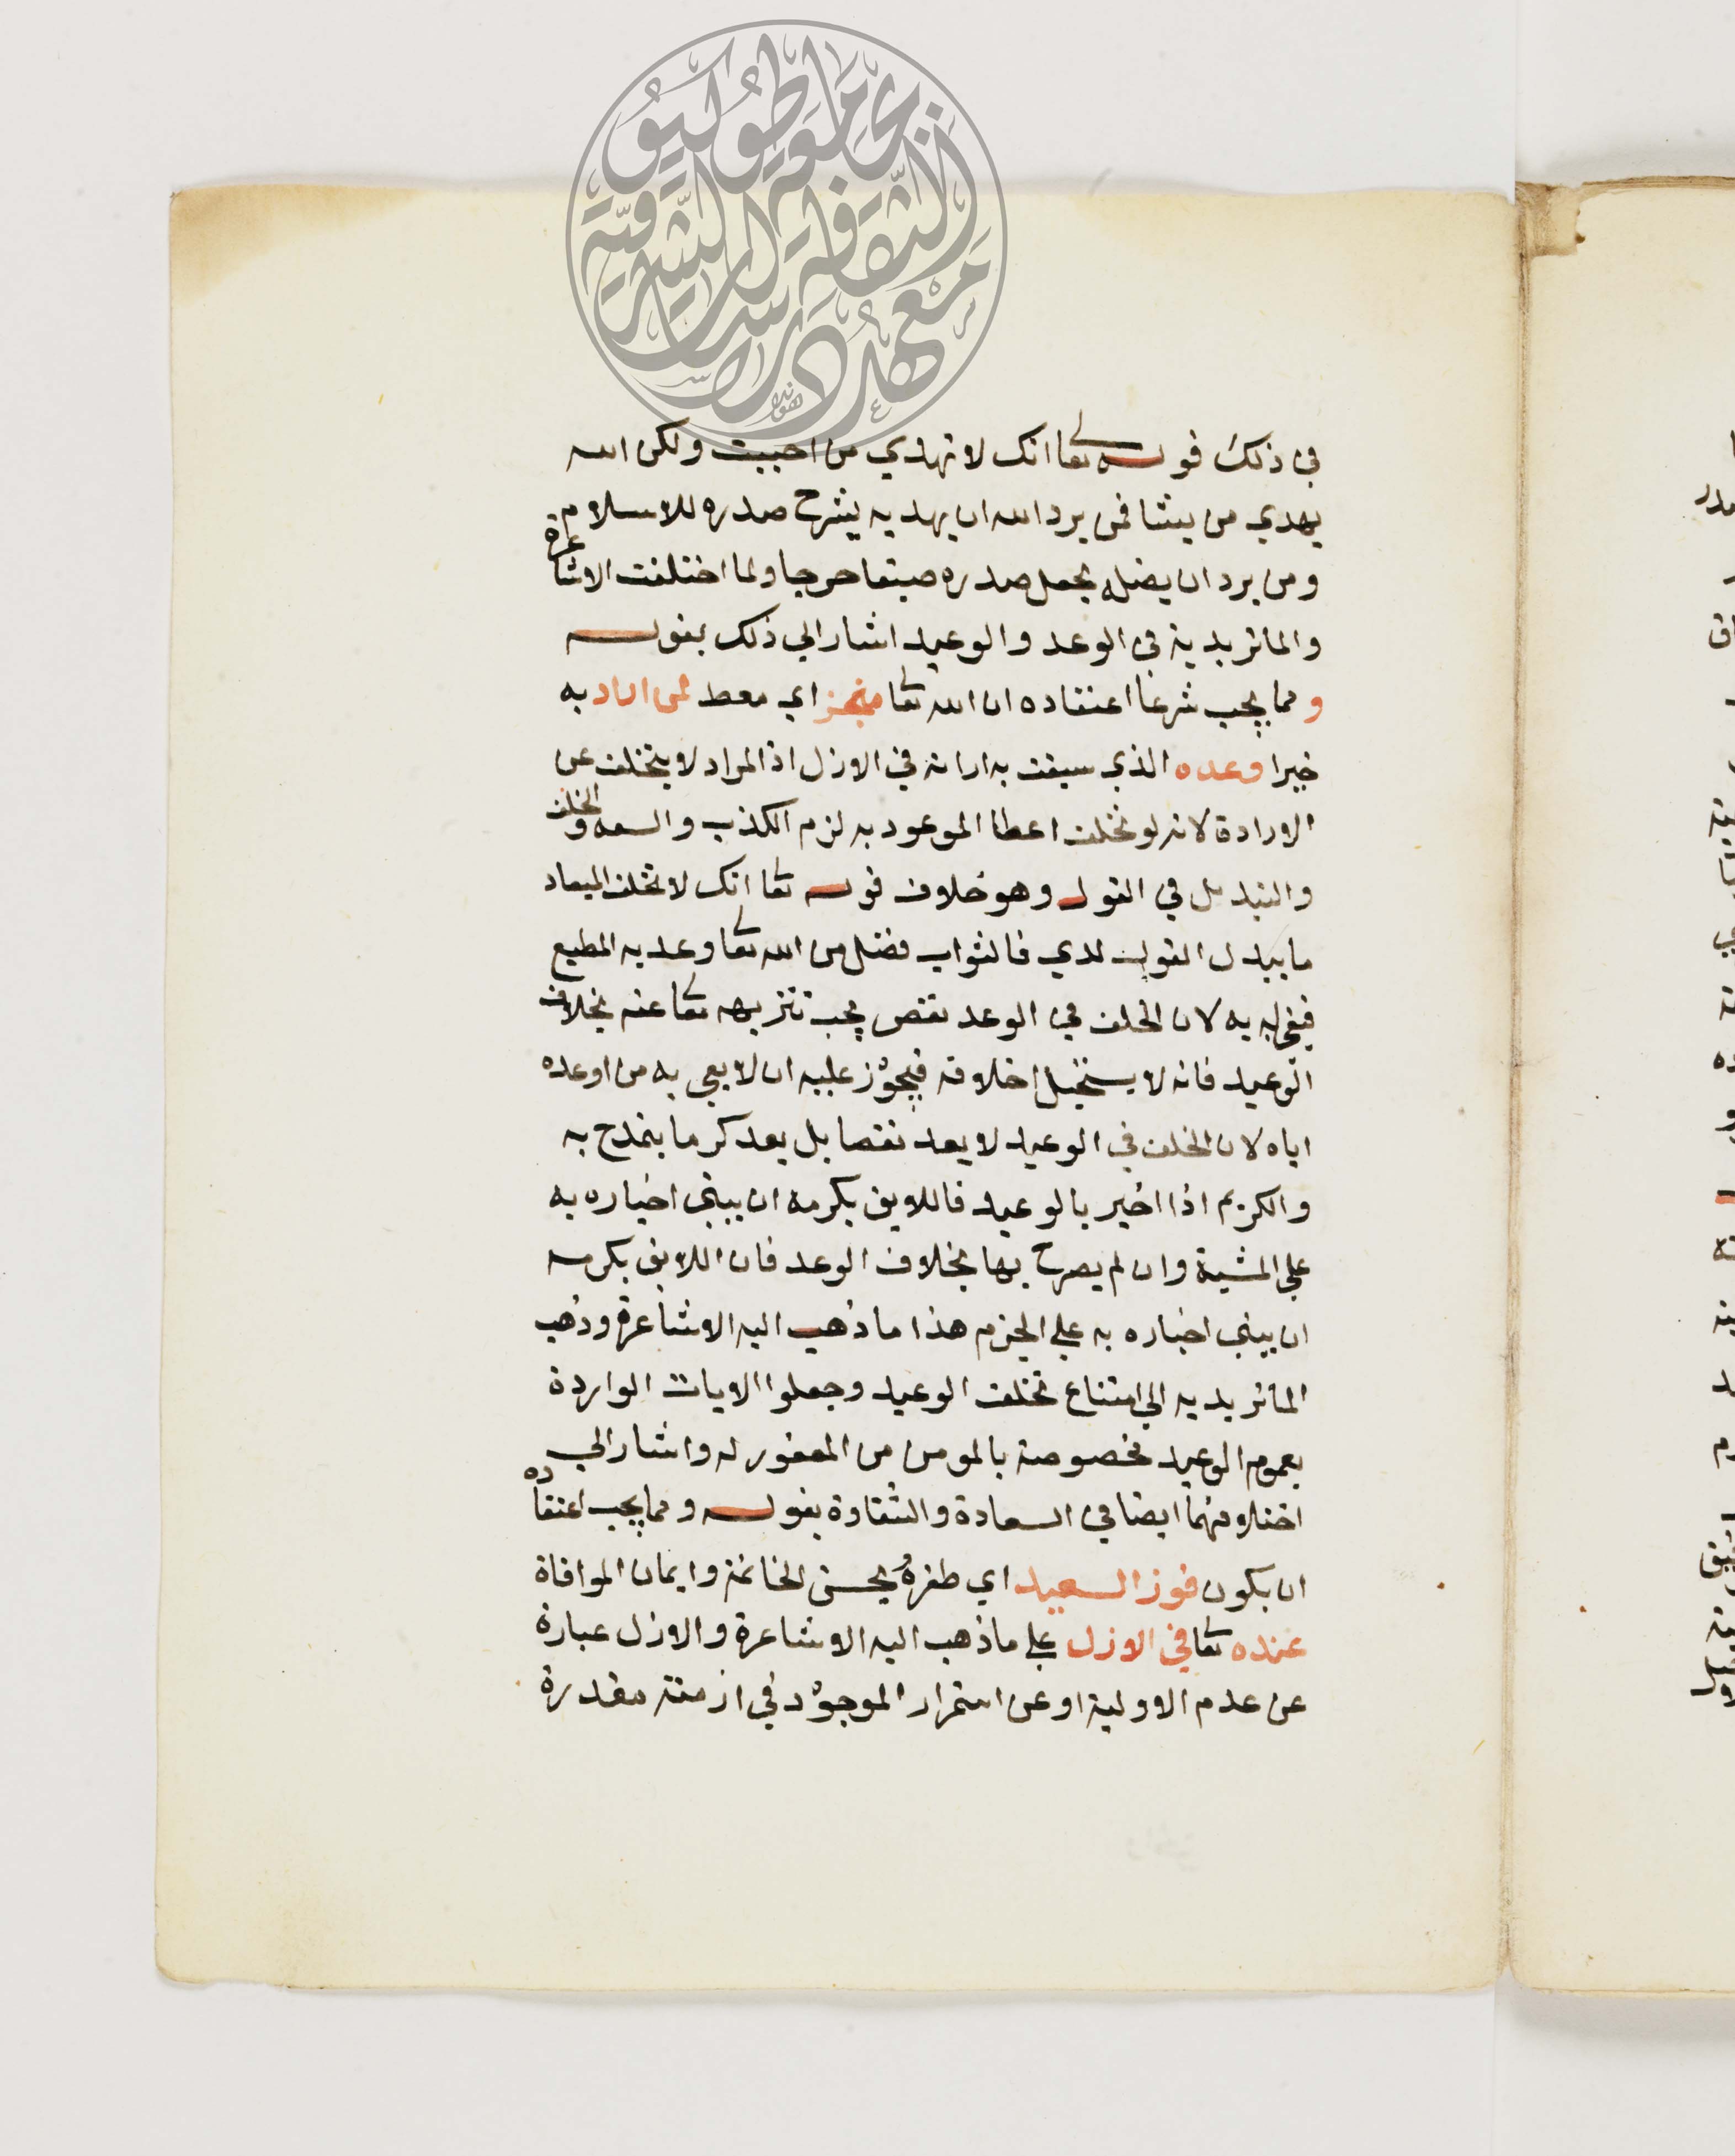 في ذلك قوله تعا انك لا تهدي من احببت ولكن الله
يهدي من يشا فمن يرد الله ان يهديه يشرح صدره للاسلام
ومن يرد ان يضله يجعل صدره ضيقا حرجا ولما اختلفت الاشاعرة
والماتريدية في الوعد والوعيد اشار الي ذلك بقوله
و مما يجب شرعا اعتقاده ان الله تعا منجز اي معط لمن اراد به
خيرا وعده الذي سبقت به ارادته في الازل اذ المراد لا يتخلف عن
الارادة لانه لو تخلف اعطا الموعود به لزم الكذب والسفه والخلف
والتبديل في القول وهو خلاف قوله تعا انك لا تخلف الميعاد
ما يبدل القول لدي فالثواب فضل من الله تعا وعد به المطيع
فيفي له به لان الخلف في الوعد نقص يجب تنزيهه تعا عنه بخلاف
الوعيد فانه لا يستحيل اخلافه فيجوز عليه ان لا يفي به من اوعده
اياه لان الخلف في الوعيد لا يعد نقصا بل يعد كرما يتمدح به
والكريم اذا اخبر بالوعيد فاللايق بكرمه ان يبني اخباره به
علي المشية وان لم يصرح بها بخلاف الوعد فان اللايق بكرمه
ان يبني اخباره به علي الجزم هذا ما ذهب اليه الاشاعرة وذهب
الماتريديه الي امتناع تخلف الوعيد وجعلوا الايات الواردة
بعموم الوعيد مخصوصة بالمومن من المغفور له واشار الي
اختلافهما ايضا في السعادة والشقاوة بقوله ومما يجب اعتقاده
ان يكون فوز السعيد اي ظفره بحسن الخاتمة وايمان الموافاة
عنده تعا في الازل علي ما ذهب اليه الاشاعرة والازل عبارة
عن عدم الاولية او عن استمرار الموجود في ازمنة مقدرة